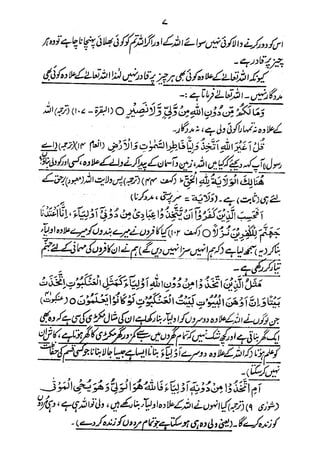 ۷
اس کو دور کرنے والا کوئی نہیں سوائے اللہ کے اور اگر اللہ تم کو کوئی بھلائی پہنچانا چاہے تو وہ ہر
چیز پر قادر ہے۔
کیونکہ اللہ تعالیٰ کے علاوہ کوئی بھی ہر چیز پر قادر نہیں لہٰذا اللہ تعالیٰ کے علاوہ کوئی بھی
مددگار نہیں۔ اللہ تعالیٰ فرماتا ہے:۔
وَمَا لَكُمْ مِّنْ دُوْنِ اللهِ مِنْ وَّلِيٍّ وَّلَا نَصِيْرٍ ○ (البقرۃ - ۱۰۷) (ترجمہ) اللہ
کے علاوہ نہ تمہارا کوئی ولی ہے، نہ مددگار۔
قُلْ اَغَيْرَ اللهِ اَتَّخِذُ وَلِيًّا فَاطِرِ السَّمٰوٰتِ وَالْاَرْضِ (انعام ۱۴) (ترجمہ) (اے
رسول) آپ کہہ دیجئے کیا میں اللہ، زمین و آسمان کے پیدا کرنے والے کے علاوہ، کسی اور کو ولی
هُنَالِكَ الْوَلَايَةُ لِلّٰهِ الْحَقِّ ؕ (کہف ۴۴) (ترجمہ) پس ولایت اللہ (معبودِ) برحق کے
لئے ہی (ثابت) ہے۔ (وَلَايَة = سرپرستی، مدد کرنا)
اَفَحَسِبَ الَّذِيْنَ كَفَرُوْا اَنْ يَّتَّخِذُوْا عِبَادِيْ مِنْ دُوْنِيْ اَوْلِيَآءَ ؕ اِنَّا اَعْتَدْنَا
جَهَنَّمَ لِلْكٰفِرِيْنَ نُزُلًا ○ (کہف ۱۰۲) کیا کافروں نے میرے بندوں کو میرے علاوہ اولیاء
بنا کر (یہ) سمجھ لیا ہے (کہ ہم انہیں سزا نہیں دیں گے) ہم نے ان کافروں کی مہمانی کے لئے جہنم
تیار کر رکھی ہے۔
مَثَلُ الَّذِيْنَ اتَّخَذُوْا مِنْ دُوْنِ اللهِ اَوْلِيَآءَ كَمَثَلِ الْعَنْكَبُوْتِ اِتَّخَذَتْ
بَيْتًا وَاِنَّ اَوْهَنَ الْبُيُوْتِ لَبَيْتُ الْعَنْكَبُوْتِ لَوْ كَانُوْا يَعْلَمُوْنَ ○ (عنکبوت ۴۱)
جن لوگوں نے اللہ کے علاوہ دوسروں کو اولیاء بنا رکھا ہے ان کی مثال مکڑی کی سی ہے کہ وہ بھی
ایک گھر بناتی ہے اور کچھ شک نہیں کہ تمام گھروں میں سب سے کمزور گھر مکڑی کا گھر ہوتا ہے، کاش ان
کو علم ہوتا (کہ اللہ کے علاوہ دوسرے اَوْلِیَاء بنانا ایسا ہے جیسا جالا بنانا جو کسی قسم کی حفاظت
نہیں کر سکتا)۔
اَمِ اتَّخَذُوْا مِنْ دُوْنِهٖ اَوْلِيَآءَ فَاللهُ هُوَ الْوَلِيُّ وَهُوَ يُحْيِ الْمَوْتٰى
(شوریٰ ۹) (ترجمہ) کیا انہوں نے اللہ کے علاوہ اولیاء بنا رکھے ہیں، ولی تو اللہ ہی ہے، وہی مُردوں
کو زندہ کرے گا۔ (یعنی ولی وہ ہی ہو سکتا ہے جو تمام مردوں کو زندہ کر دے)۔